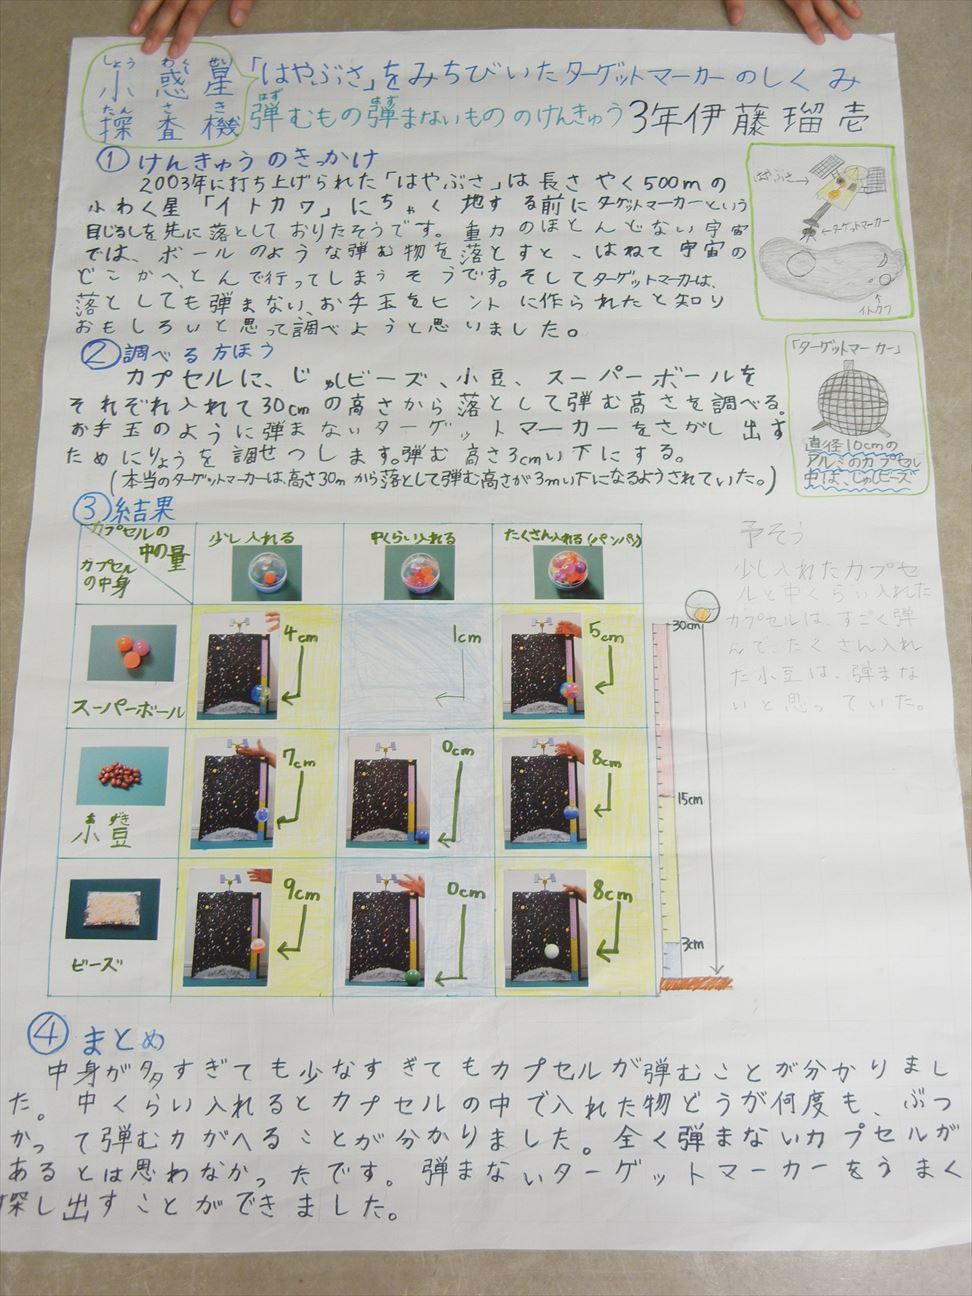 小惑星
しょうわくせい
探査機
たんさき
「はやぶさ」をみちびいたターゲットマーカーのしくみ
はず はず
弾むもの弾まないもののけんきゅう 3年伊藤瑠壱
① けんきゅうのきっかけ
2003年に打ち上げられた「はやぶさ」は長さやく500mの
小わく星「イトカワ」にちゃく地する前にターゲットマーカーという
目じるしを先に落としておりたそうです。重力のほとんどない宇宙
では、ボールのような弾む物を落とすと、はねて宇宙の
どこかへ、とんで行ってしまうそうです。そしてターゲットマーカーは、
落としても弾まない、お手玉をヒントに作られたと知り
おもしろいと思って調べようと思いました。
はやぶさ→
←ターゲットマーカー
↑
イトカワ
② 調べる方ほう
カプセルに、じゅしビーズ、小豆、スーパーボールを
それぞれ入れて30cmの高さから落として弾む高さを調べる。
お手玉のように弾まないターゲットマーカーをさがし出す
ためにりょうを調せつします。弾む高さ3cmい下にする。
(本当のターゲットマーカーは、高さ30mから落として弾む高さが3mい下になるようされていた。)
「ターゲットマーカー」
直径10cmの
アルミのカプセル
中は、じゅしビーズ
③ 結果
カプセルの
中の量
カプセル
の中身
少し入れる
中くらい入れる
たくさん入れる(パンパン)
スーパーボール
4cm
1cm
5cm
あずき
小豆
7cm
0cm
8cm
ビーズ
9cm
0cm
8cm
30cm
15cm
3cm
予そう
少し入れたカプセ
ルと中くらい入れた
カプセルは、すごく弾
んで、たくさん入れ
た小豆は、弾まな
いと思っていた。
④ まとめ
中身が多すぎても少なすぎてもカプセルが弾むことが分かりまし
た。中くらい入れるとカプセルの中で入れた物どうが何度も、ぶつ
かって弾む力がへることが分かりました。全く弾まないカプセルが
あるとは思わなかったです。弾まないターゲットマーカーをうまく
探し出すことができました。